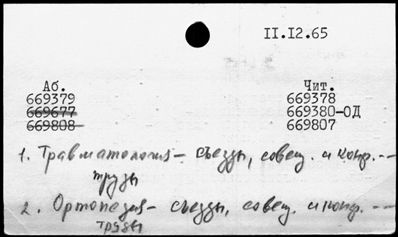 II.I2.65
Аб. Чит.
669379 669378
669677 669380-ОД
669808 669807
1. Травматология – съезды, совещ. и конф. --
труды
2. Ортопедия – съезды, совещ. и конф. --
труды